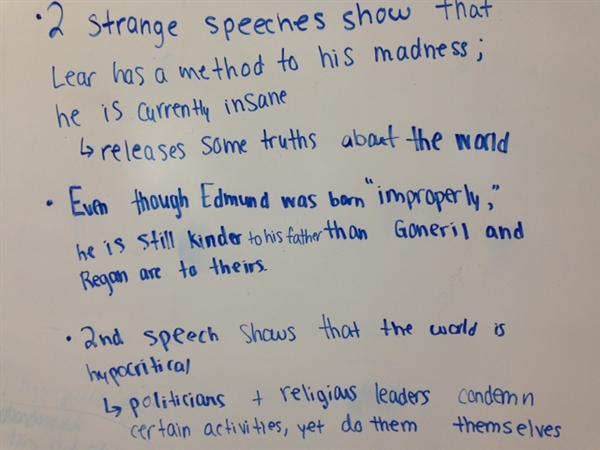 • 2 strange speeches show that
Lear has a method to his madness;
he is currently insane
↳ releases some truths about the world
• Even though Edmund was born "improperly,"
he is still kinder to his father than Goneril and
Regan are to theirs.
• 2nd speech shows that the world is
hypocritical
↳ politicians + religious leaders condemn
certain activities, yet do them themselves